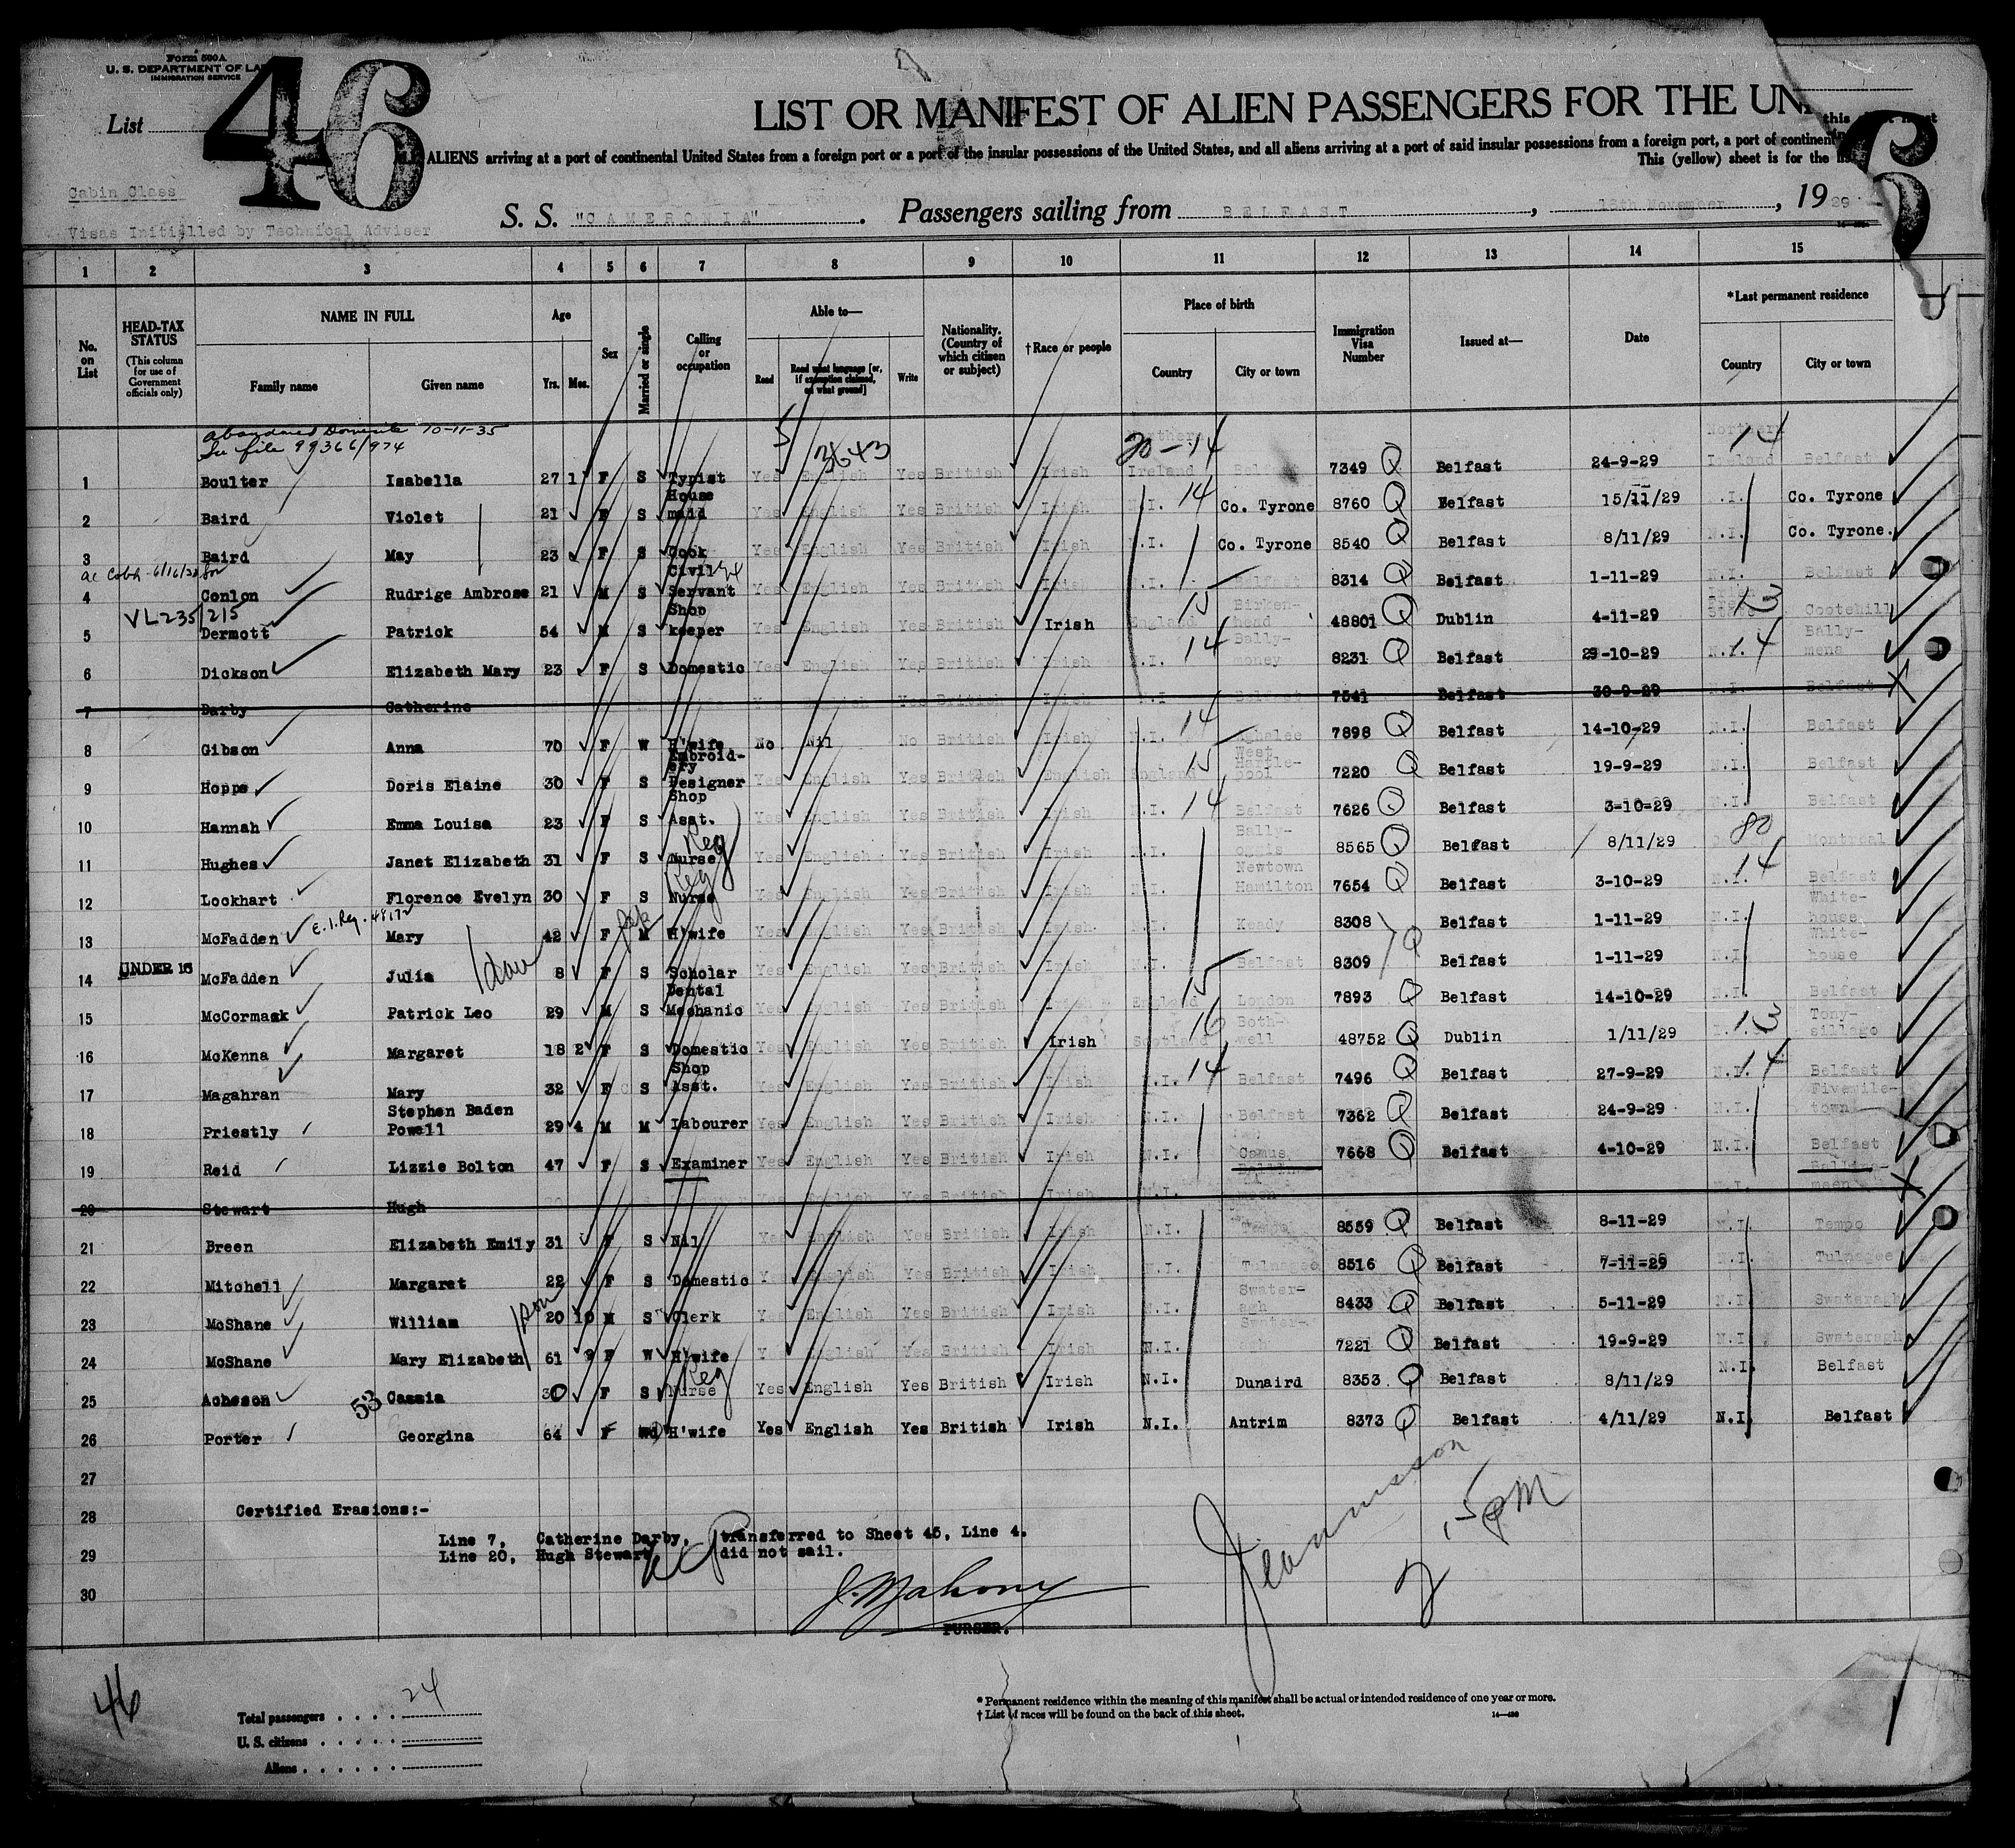 Form 500A
U. S. DEPARTMENT OF LA
IMMIGRATION SERVICE
46
List
LIST OR MANIFEST OF ALIEN PASSENGERS FOR THE UN
ALIENS arriving at a port of continental United States from a foreign port or a port of the insular possessions of the United States, and all aliens arriving at a port of said insular possessions from a foreign port, a port of continent
This (yellow) sheet is for the lis
Cabin Class
S. S. "CAMERONIA". Passengers sailing from BELFAST, 16th November, 1929
Visas Initialled by Technical Adviser
1 2 3 4 5 6 7 8 9 10 11 12 13 14 15
No. on List
HEAD-TAX STATUS (This column for use of Government officials only)
NAME IN FULL Family name Given name
Age Yrs. Mos.
Sex
Married or single
Calling or occupation
Able to— Read Read what language [or, if exemption claimed, on what ground] Write
Nationality. (Country of which citizen or subject)
† Race or people
Place of birth Country City or town
Immigration Visa Number
Issued at—
Date
* Last permanent residence Country City or town
abandoned Domicile 10-11-35
See file 99366/974
3643 20-14 14
1 Boulter Isabella 27 1 F S Typist Yes English Yes British Irish Northern Ireland 7349 Q Belfast 24-9-29 Northern Ireland Belfast
2 Baird Violet 21 F S House maid Yes English Yes British Irish N.I. 14 Co. Tyrone 8760 Q Belfast 15/11/29 N.I. Co. Tyrone
3 Baird May 23 F S Cook Yes English Yes British Irish N.I. Co. Tyrone 8540 Q Belfast 8/11/29 N.I. Co. Tyrone.
4 Conlon Rudrige Ambrose 21 M S Civil Servant Yes English Yes British Irish N.I. Belfast 8314 Q Belfast 1-11-29 N.I. Belfast
VL 235/215
5 Dermott Patrick 54 M S Shop keeper Yes English Yes British Irish England 15 Birken-head 48801 Q Dublin 4-11-29 Irish Free State 13 Cootehill
6 Dickson Elizabeth Mary 23 F S Domestic Yes English Yes British Irish N.I. 14 Bally-money 8231 Q Belfast 29-10-29 N.I. 14 Bally-mena
7 Darby Catherine Yes English Yes British Irish N.I. Belfast 7541 Belfast 30-9-29 N.I. Belfast X
8 Gibson Anna 70 F W H'wife No Nil No British Irish N.I. 14 Aghalee 7898 Q Belfast 14-10-29 N.I. Belfast
9 Hopps Doris Elaine 30 F S Embroid-ery Designer Yes English Yes British English England 15 West Hartle-pool 7220 Q Belfast 19-9-29 N.I. Belfast
10 Hannah Emma Louisa 23 F S Shop Asst. Yes English Yes British Irish N.I. 14 Belfast 7626 Q Belfast 3-10-29 N.I. Belfast
11 Hughes Janet Elizabeth 31 F S Nurse Reg Yes English Yes British Irish N.I. 8565 Q Belfast 8/11/29 80 Montreal
12 Lockhart Florence Evelyn 30 F S Nurse Reg Yes English Yes British Irish N.I. Newtown Hamilton 7654 Q Belfast 3-10-29 N.I. 14 Belfast
13 McFadden Mary 42 F M H'wife Yes English Yes British Irish N.I. Keady 8308 Belfast 1-11-29 N.I. White-house
14 UNDER 16 McFadden Julia 8 F S Scholar Yes English Yes British Irish N.I. Belfast 8309 Q Belfast 1-11-29 N.I. White-house
15 McCormack Patrick Leo 29 M S Dental Mechanic Yes English Yes British Irish England 15 London 7893 Q Belfast 14-10-29 N.I. Belfast
16 McKenna Margaret 18 2 F S Domestic Yes English Yes British Irish Scotland 16 Both-well 48752 Q Dublin 1/11/29 13
17 Magahran Mary 32 F S Shop Asst. Yes English Yes British Irish N.I. 14 Belfast 7496 Q Belfast 27-9-29 N.I. 14 Belfast
18 Priestly Stephen Baden Powell 29 4 M M Labourer Yes English Yes British Irish N.I. Belfast 7362 Q Belfast 24-9-29 N.I. Fivemile-town
19 Reid Lizzie Bolton 47 F S Examiner Yes English Yes British Irish N.I. Camus 7668 Q Belfast 4-10-29 N.I. Belfast
20 Stewart Hugh Yes English Yes British Irish N.I. N.I. X
21 Breen Elizabeth Emily 31 F S Nil Yes English Yes British Irish N.I. Tempo 8559 Q Belfast 8-11-29 N.I. Tempo
22 Mitchell Margaret 22 F S Domestic Yes English Yes British Irish N.I. 8516 Q Belfast 7-11-29 N.I.
23 McShane William 20 10 M S Clerk Yes English Yes British Irish N.I. Swater-agh 8433 Q Belfast 5-11-29 N.I. Swateragh
24 McShane Mary Elizabeth 61 9 F W H'wife Yes English Yes British Irish N.I. Swater-agh 7221 Q Belfast 19-9-29 N.I. Swateragh
25 Acheson Cassia 30 F S Nurse Reg Yes English Yes British Irish N.I. Dunaird 8353 Q Belfast 8/11/29 N.I. Belfast
53
26 Porter Georgina 64 F Wd H'wife Yes English Yes British Irish N.I. Antrim 8373 Q Belfast 4/11/29 N.I. Belfast
27
28 Certified Erasions:-
Line 7, Catherine Darby, transferred to Sheet 45, Line 4.
29 Line 20, Hugh Stewart did not sail.
30 J. Mahony
PURSER.
46
Total passengers . . . . 24
U. S. citizens . . . . .
Aliens . . . . . .
* Permanent residence within the meaning of this manifest shall be actual or intended residence of one year or more.
† List of races will be found on the back of this sheet.